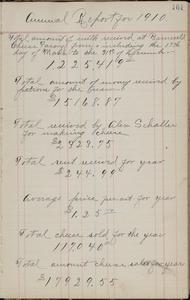 161
Annual Report for 1910.
Total amount of milk received at
Cheese Factory from & including the 17th
day of to the 31st of December
1,225,419
Total amount of money received by
patrons for the season
$15168.87
Total received by Alex Schaller
for making cheese
$2,422.75
Total rent received for year
$244.99
Average price per cwt for year
$1.25
Total cheese sold for the year
119040
Total amount cheese sales for year
$17929.55